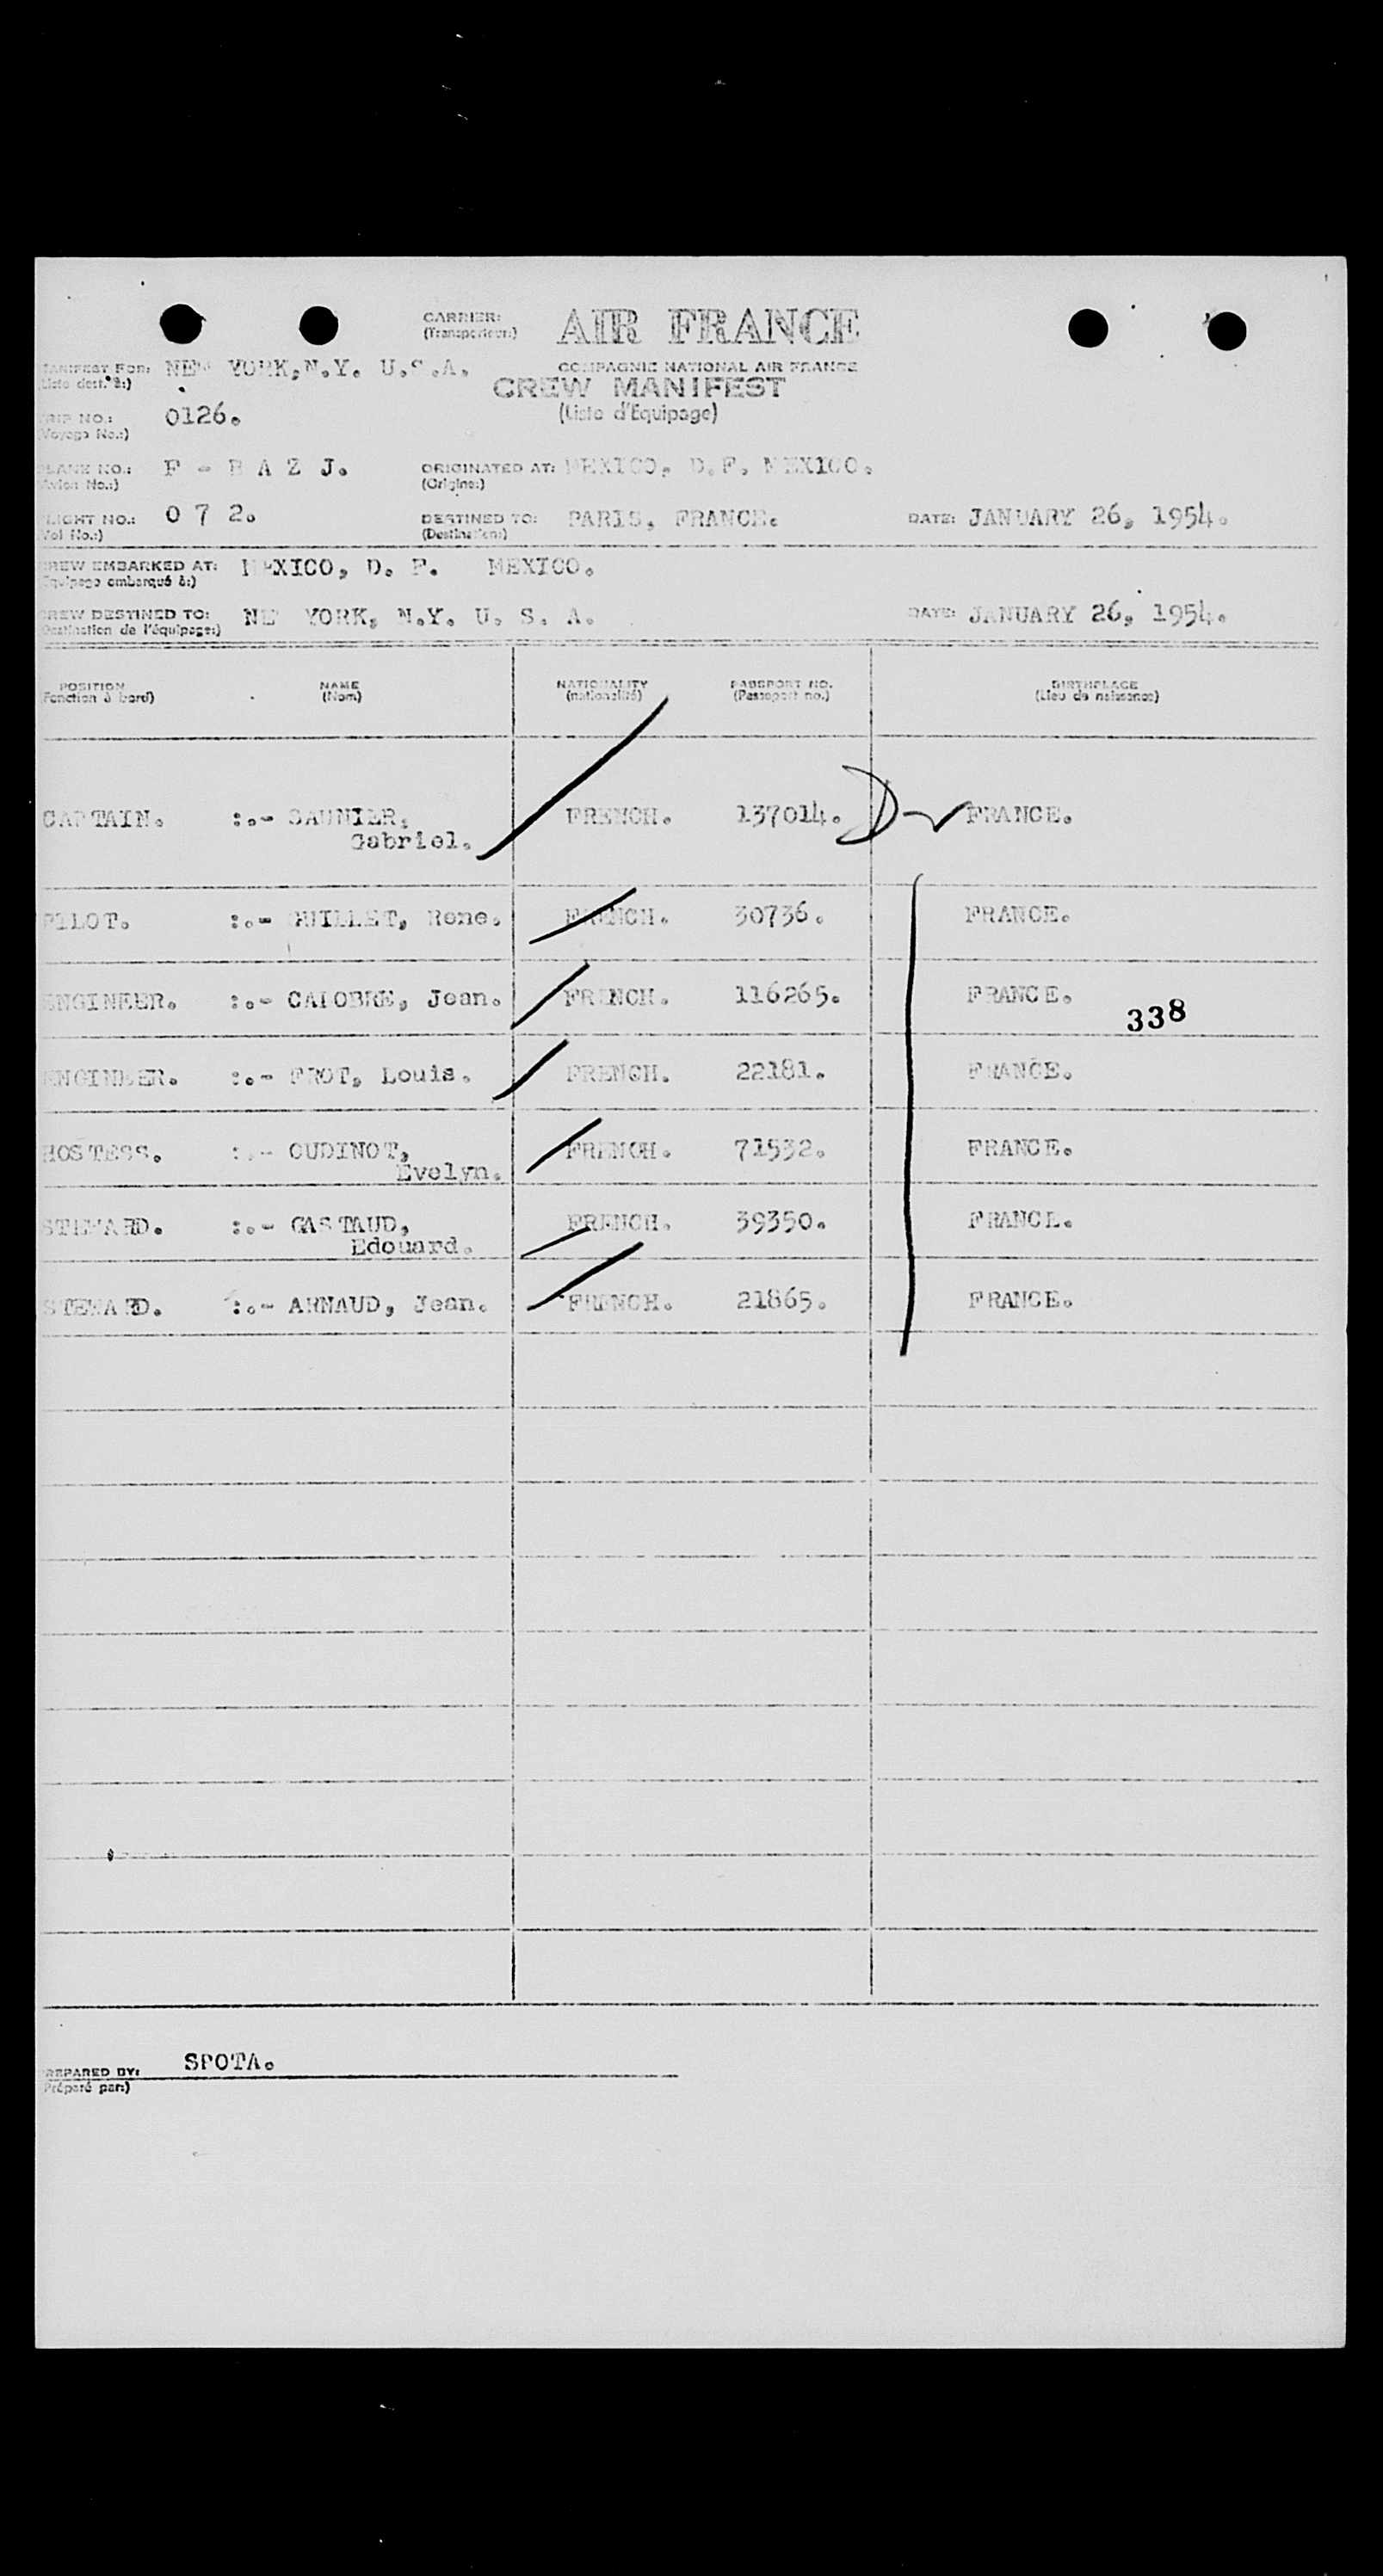 CARRIER: AIR FRANCE
(Transporteur:)
MANIFEST FOR: NEW YORK, N.Y. U.S.A. COMPAGNIE NATIONAL AIR FRANCE
(Liste dest. à:) CREW MANIFEST
TRIP NO.: 0126. (Liste d'Equipage)
(Voyage No.:)
PLANE NO.: F - B A Z J. ORIGINATED AT: MEXICO, D.F. MEXICO.
(Avion No.:) (Origine:)
FLIGHT NO.: 0 7 2. DESTINED TO: PARIS, FRANCE. DATE: JANUARY 26, 1954.
(Vol No.:) (Destination:)
CREW EMBARKED AT: MEXICO, D. F. MEXICO.
(Equipage embarqué à:)
CREW DESTINED TO: NEW YORK, N.Y. U. S. A. DATE: JANUARY 26, 1954.
(Destination de l'équipage:)
POSITION NAME NATIONALITY PASSPORT NO. BIRTHPLACE
(Fonction à bord) (Nom) (nationalité) (Passeport no.) (Lieu de naissance)
CAPTAIN. :.- SAUNIER, FRENCH. 137014. D- FRANCE.
Gabriel.
PILOT. :.- GUILLET, Rene. FRENCH. 30736. FRANCE.
ENGINEER. :.- CALOBRE, Jean. FRENCH. 116265. FRANCE.
338
ENGINEER. :.- FROT, Louis. FRENCH. 22181. FRANCE.
HOSTESS. :.- OUDINOT, FRENCH. 71532. FRANCE.
Evelyn.
STEWARD. :.- GASTAUD, FRENCH. 39350. FRANCE.
Edouard.
STEWARD. :.- ARNAUD, Jean. FRENCH. 21865. FRANCE.
PREPARED BY: SPOTA.
(Préparé par:)